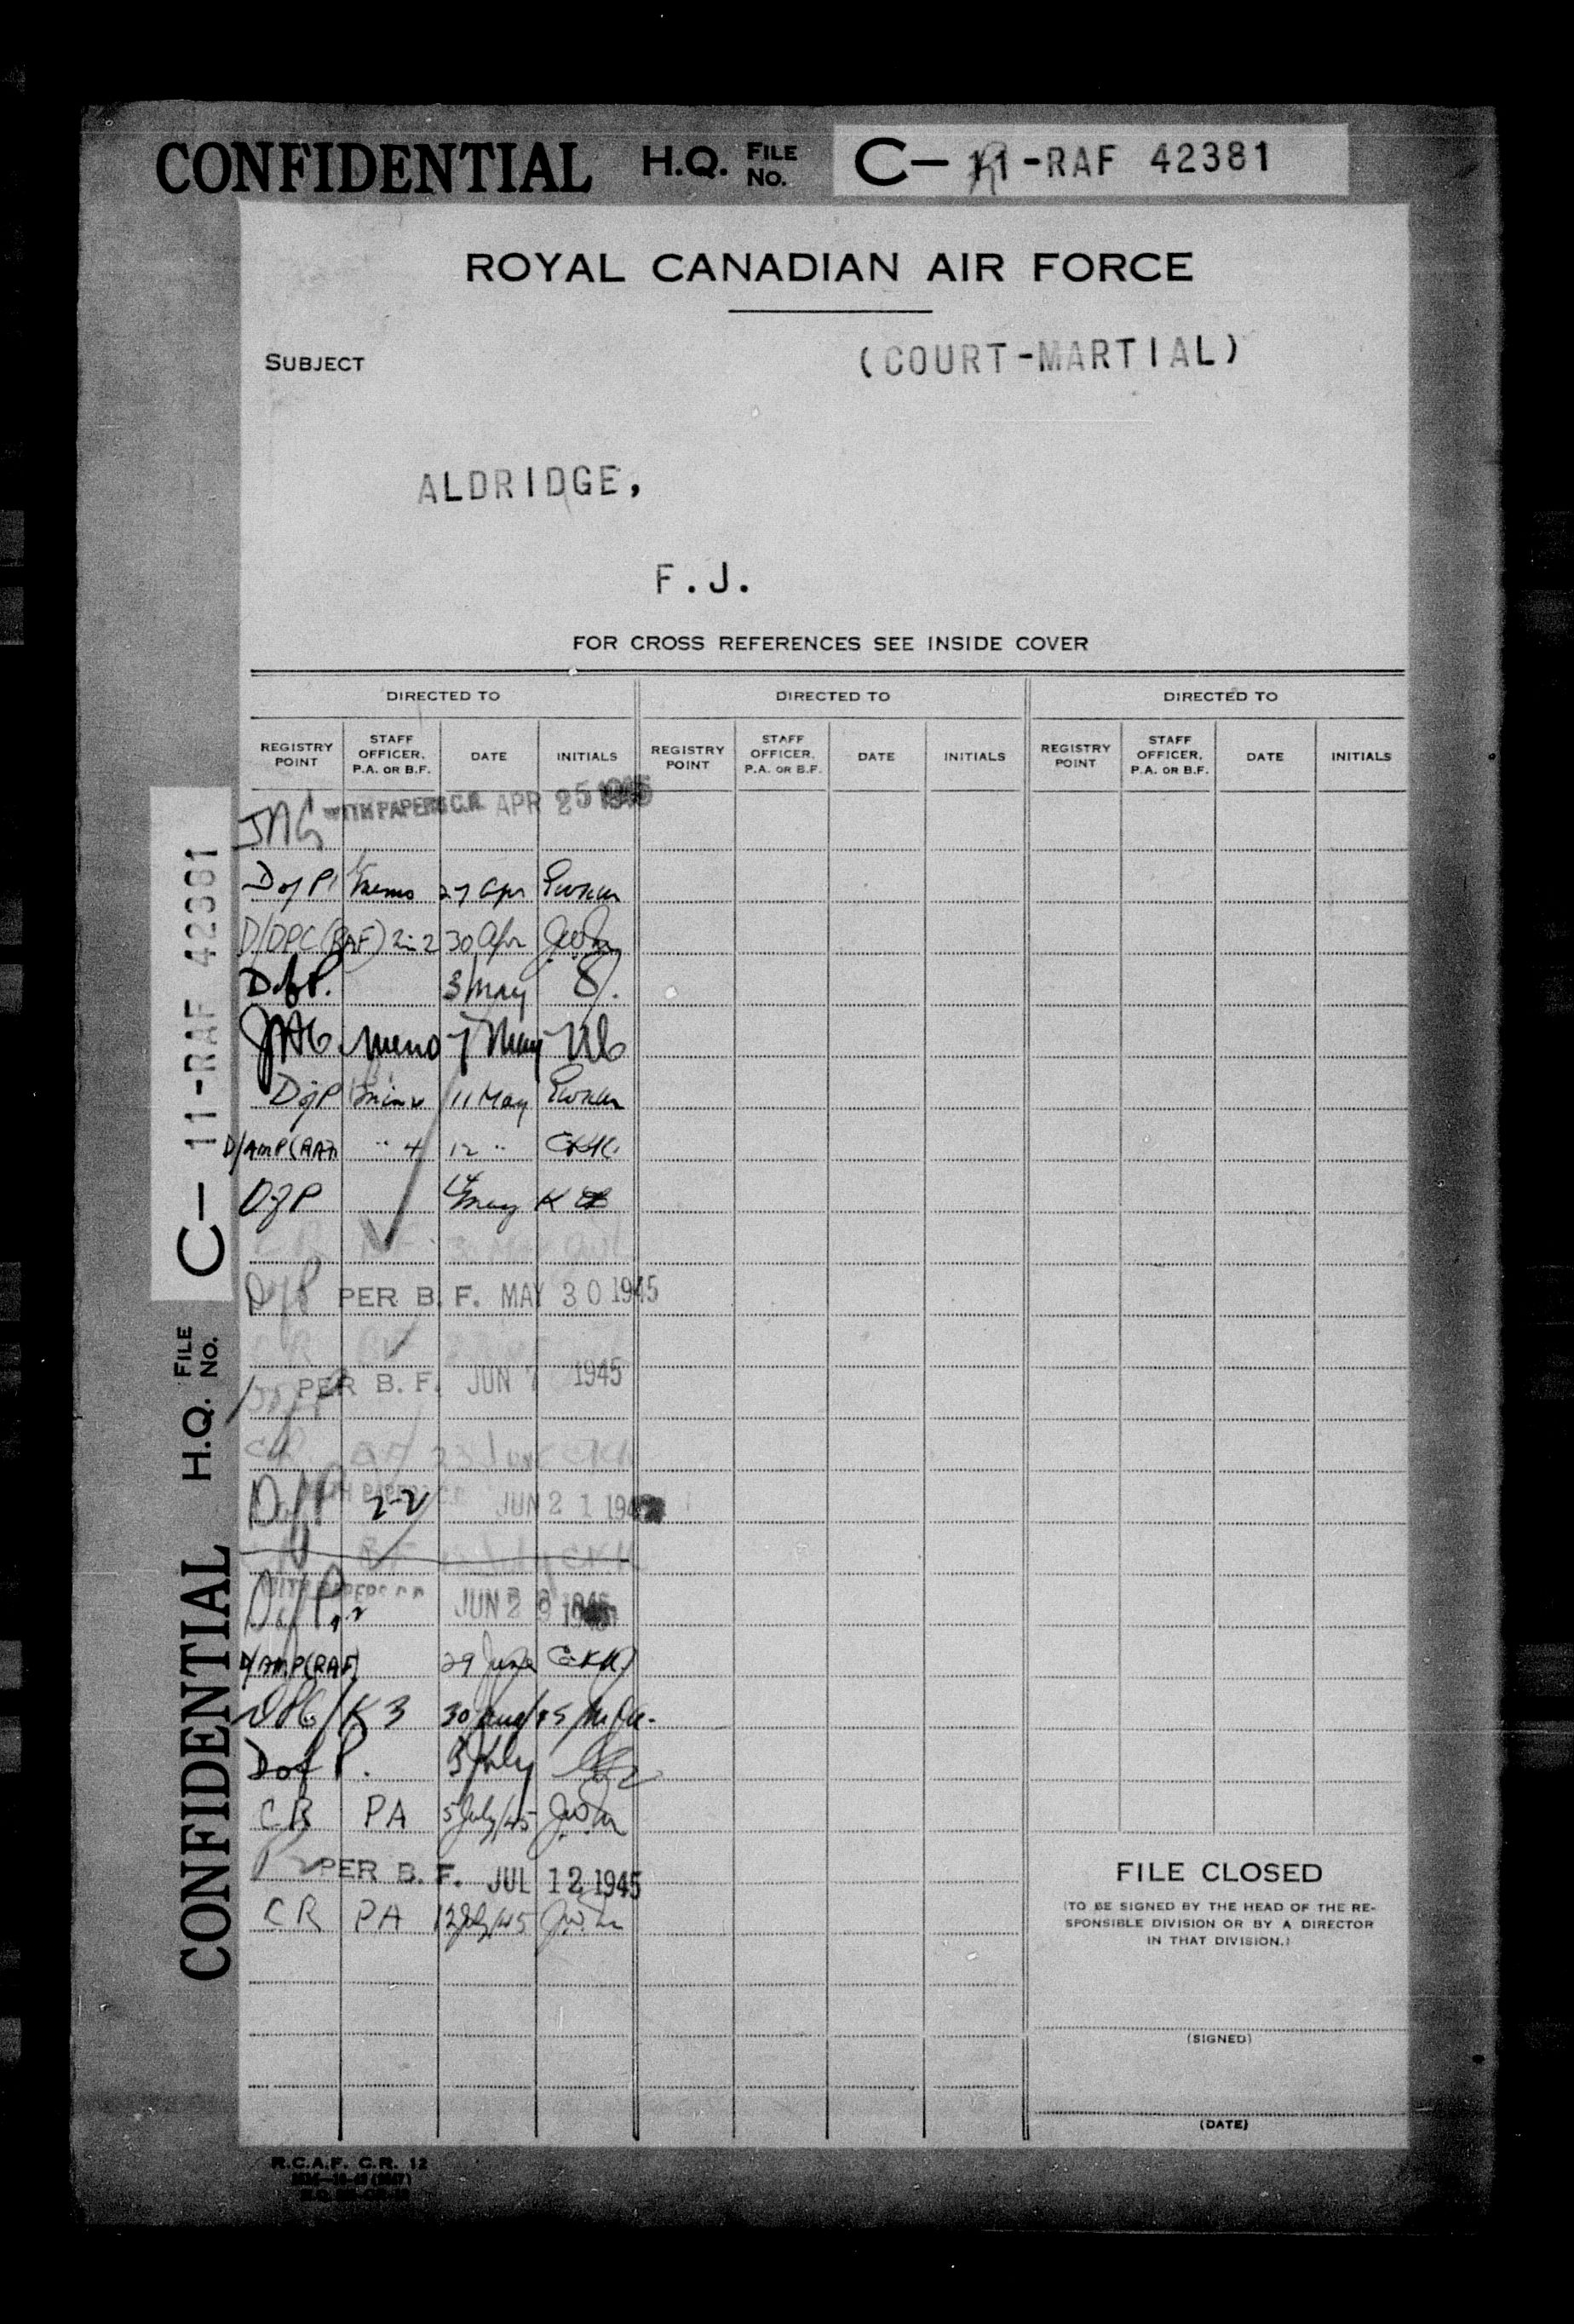 CONFIDENTIAL H.Q. FILE NO. C- 11-RAF 42381
ROYAL CANADIAN AIR FORCE
SUBJECT (COURT-MARTIAL)
ALDRIDGE,
F.J.
FOR CROSS REFERENCES SEE INSIDE COVER
DIRECTED TO DIRECTED TO DIRECTED TO
REGISTRY POINT STAFF OFFICER, P.A. OR B.F. DATE INITIALS REGISTRY POINT STAFF OFFICER, P.A. OR B.F. DATE INITIALS REGISTRY POINT STAFF OFFICER, P.A. OR B.F. DATE INITIALS
JAG WITH PAPERS C.R. APR 25 1945
D of P memo 27 Apr
D/DPC (RAF) 2-2 30 Apr
D of P. 3 May
JAG memo 7 May
D of P 11 May
D/AMP(RAF) " 4 12 " CKK
D of P 14 May
D of P PER B.F. MAY 30 1945
PER B.F. JUN 7 1945
CR BF 23 June CKK
D of P 2-2 JUN 21 1945
D of P JUN 28 1945
D/AMP(RAF) 29 June CKK
K3 30
D of P. 3 July
CR PA 5 July/45
PER B.F. JUL 12 1945
CR PA 12 July/45
FILE CLOSED
(TO BE SIGNED BY THE HEAD OF THE RE-
SPONSIBLE DIVISION OR BY A DIRECTOR
IN THAT DIVISION.)
(SIGNED)
(DATE)
R.C.A.F. C.R. 12
CONFIDENTIAL H.Q. FILE NO. C- 11-RAF 42381